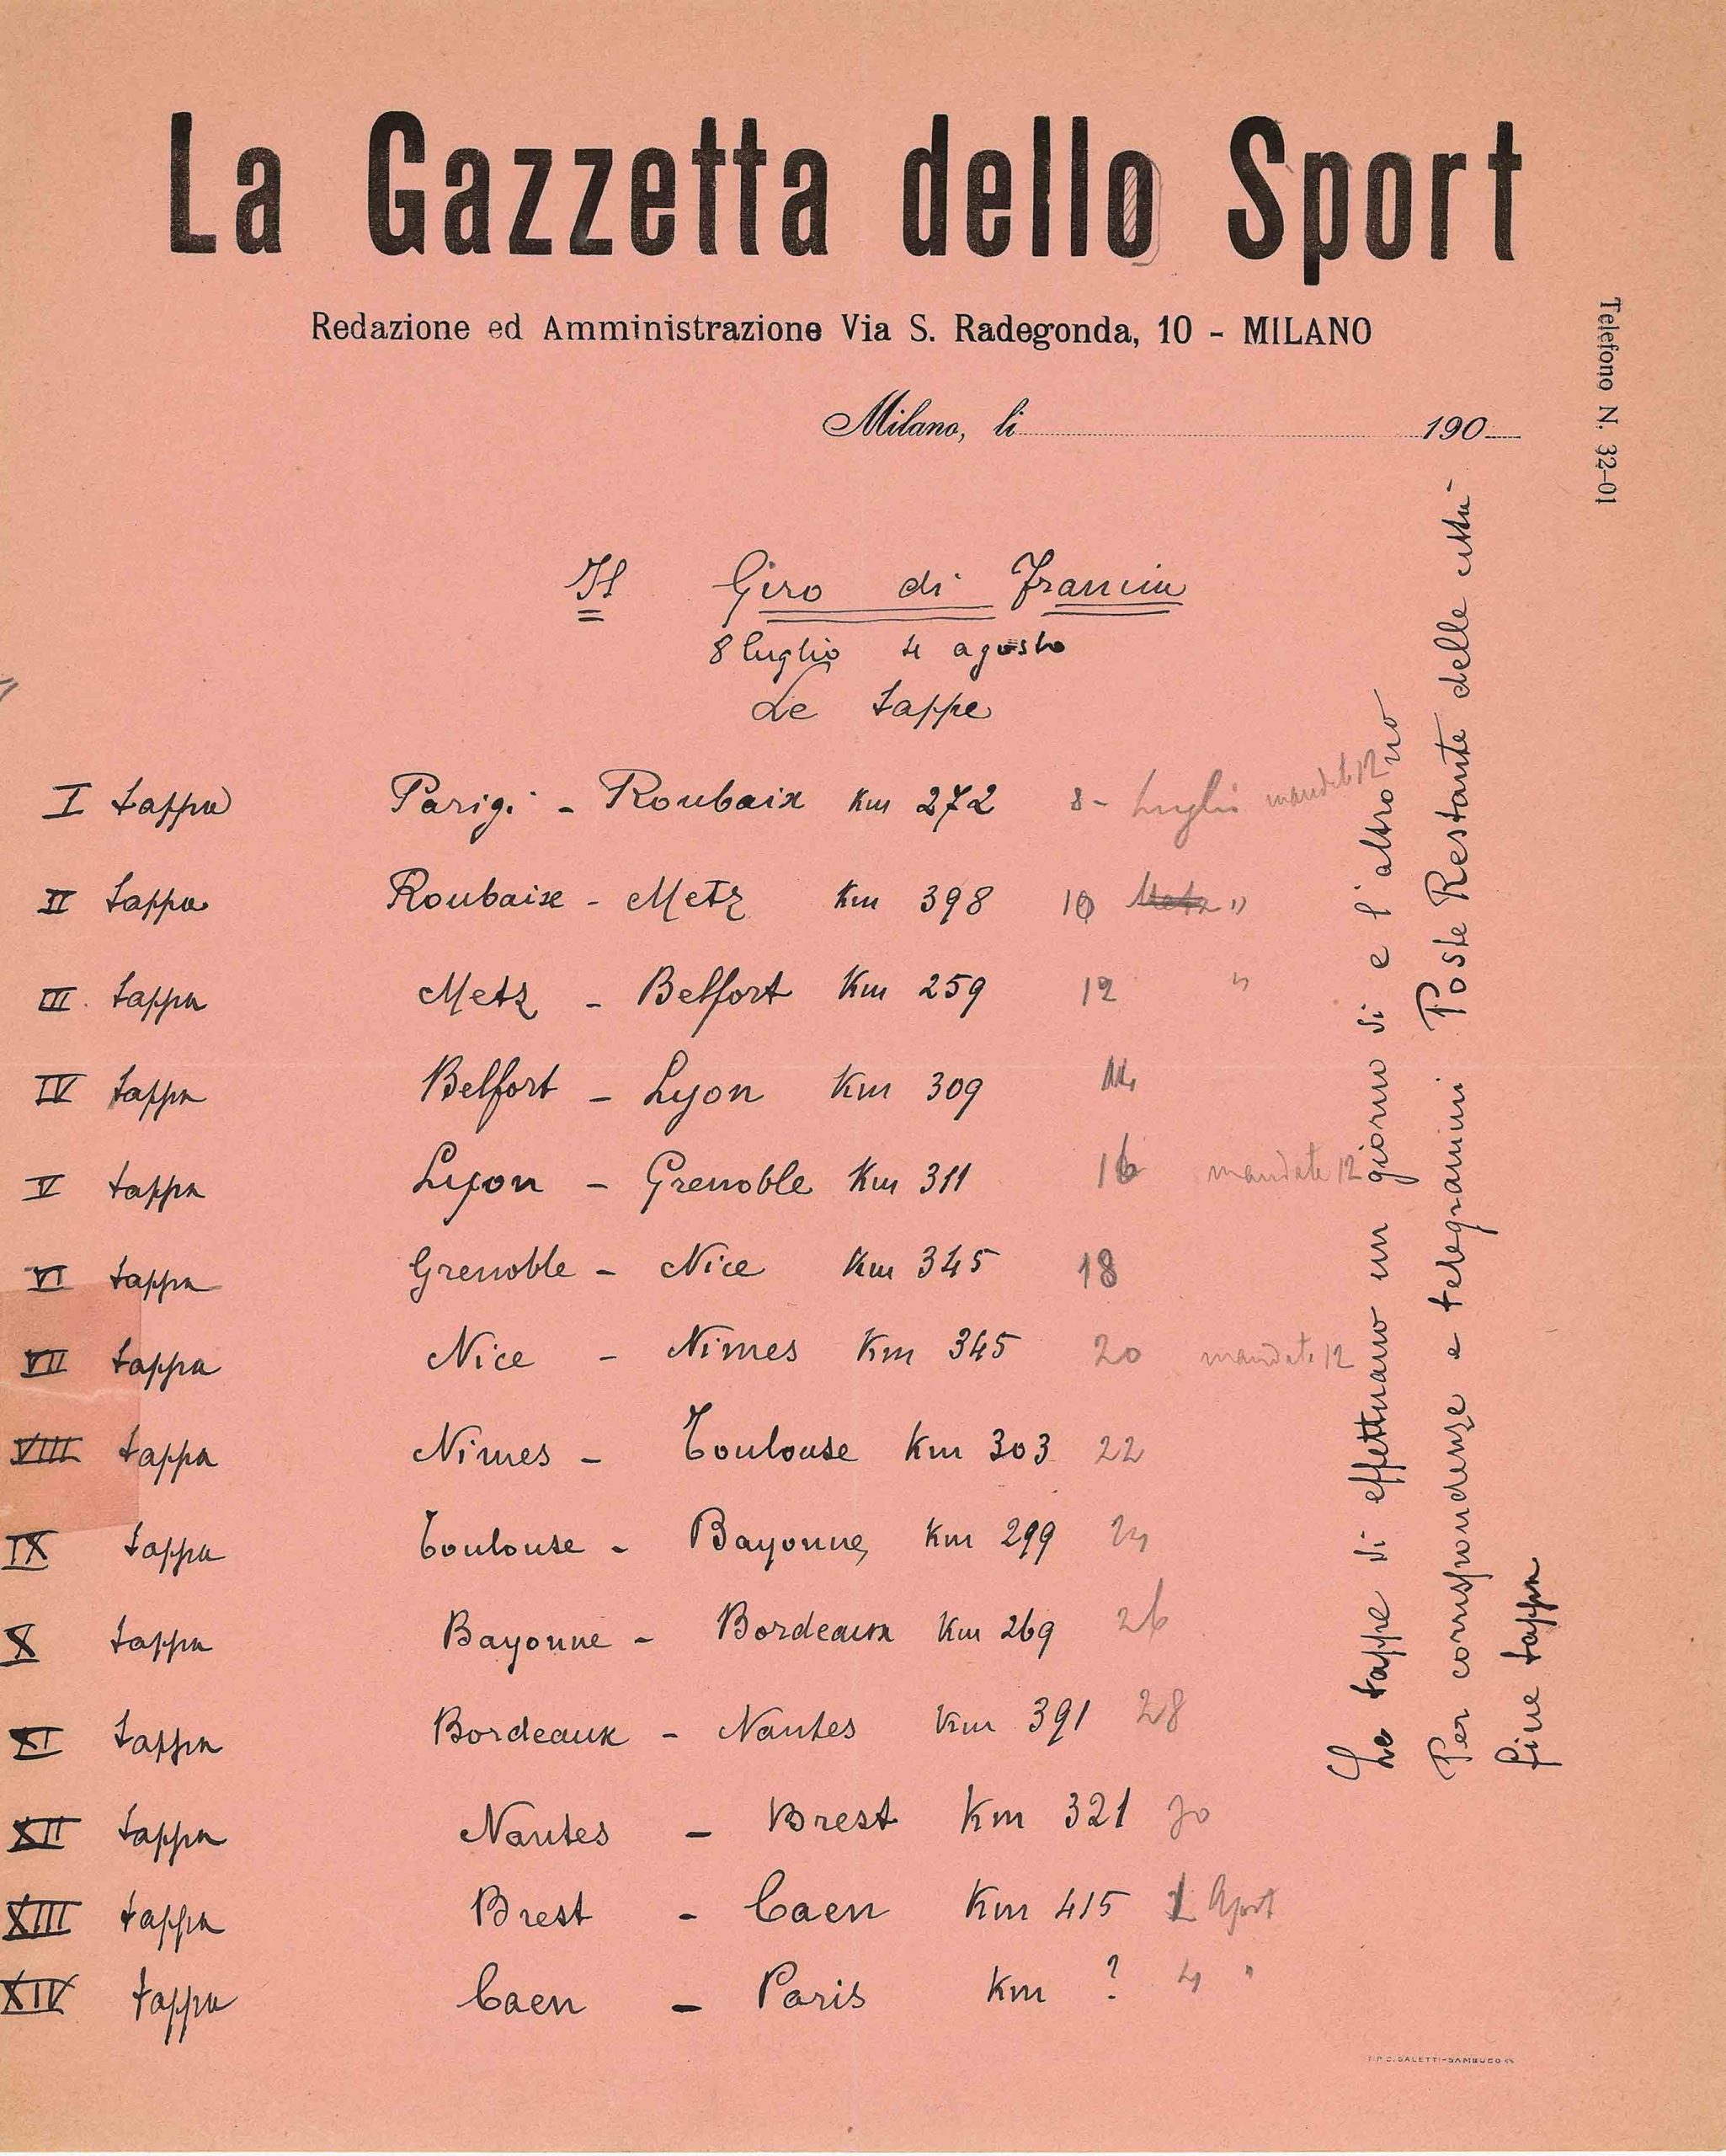 La Gazzetta dello Sport
Redazione ed Amministrazione Via S. Radegonda, 10 - MILANO
Telefono N. 32-01
Milano, li 190
Il Giro di Francia
8 luglio 4 agosto
Le tappe
I tappa Parigi - Roubaix Km 272 8 - Luglio mandate 12
II tappa Roubaix - Metz Km 398 10 Metz "
III. tappa Metz - Belfort Km 259 12 "
IV tappa Belfort - Lyon Km 309 14
V tappa Lyon - Grenoble Km 311 16 mandate 12
VI tappa Grenoble - Nice Km 345 18
VII tappa Nice - Nimes Km 345 20 mandate 12
VIII tappa Nimes - Toulouse Km 303 22
IX tappa Toulouse - Bayonne Km 299 24
X tappa Bayonne - Bordeaux Km 269 26
XI tappa Bordeaux - Nantes Km 391 28
XII tappa Nantes - Brest Km 321 30
XIII tappa Brest - Caen Km 415 1 Agost
XIV tappa Caen - Paris Km ? 4 "
Le tappe si effettuano un giorno si e l'altro no
Per corrispondenze e telegrammi Poste Restante delle città
fine tappa